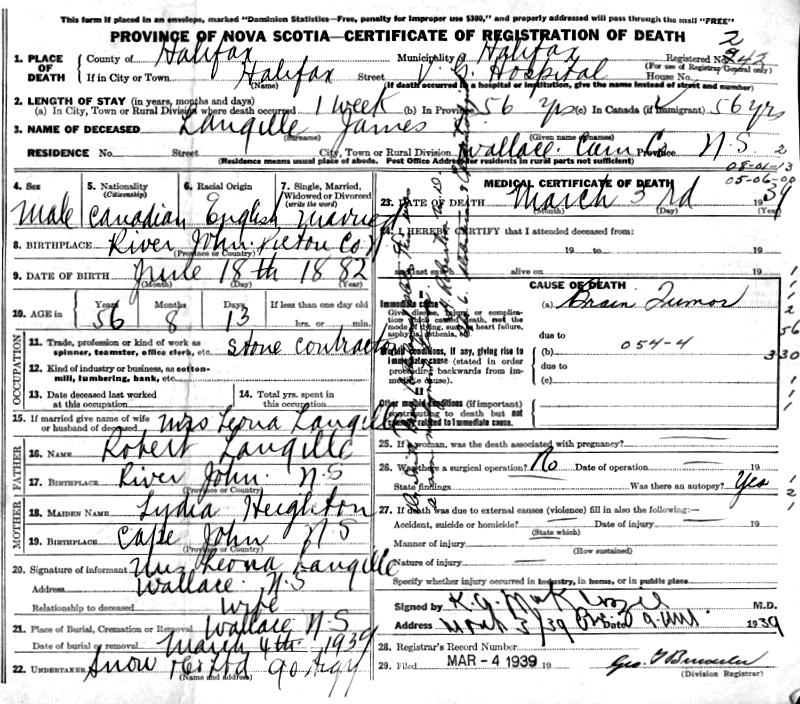 This form if placed in an envelope, marked "Dominion Statistics—Free, penalty for improper use $300," and properly addressed will pass through the mail "FREE"
PROVINCE OF NOVA SCOTIA—CERTIFICATE OF REGISTRATION OF DEATH
1. PLACE OF DEATH County of Halifax Municipality Halifax Registered No. 242
(For use of Registrar General only)
If in City or Town Halifax Street V. G. Hospital House No.
(Name) (If death occurred in a hospital or institution, give the name instead of street and number)
2. LENGTH OF STAY (in years, months and days)
(a) In City, Town or Rural Division where death occurred 1 week (b) In Province 56 yrs (c) In Canada (if immigrant) 56 yrs
3. NAME OF DECEASED Langille James
(Surname) (Given name or names)
RESIDENCE No. Street City, Town or Rural Division Wallace Cum Co Province N.S.
(Residence means usual place of abode. Post Office Address for residents in rural parts not sufficient)
08-01-13
05-06-00
4. Sex 5. Nationality (Citizenship) 6. Racial Origin 7. Single, Married, Widowed or Divorced (write the word)
Male Canadian English married
8. BIRTHPLACE River John Pictou Co
(Province or Country)
9. DATE OF BIRTH June 18th 1882
(Month) (Day) (Year)
10. AGE in Years 56 Months 8 Days 13 If less than one day old hrs. or min.
OCCUPATION
11. Trade, profession or kind of work as spinner, teamster, office clerk, etc. Stone contractor
12. Kind of industry or business, as cotton-mill, lumbering, bank, etc.
13. Date deceased last worked at this occupation 14. Total yrs. spent in this occupation
15. If married give name of wife or husband of deceased Mrs Leona Langille
FATHER
16. NAME Robert Langille
17. BIRTHPLACE River John N.S
(Province or Country)
MOTHER
18. MAIDEN NAME Lydia Heighton
19. BIRTHPLACE Cape John N S
(Province or Country)
20. Signature of informant Mrs Leona Langille
Address Wallace N.S
Relationship to deceased wife
21. Place of Burial, Cremation or Removal Wallace N.S
Date of burial or removal March 4th 1939
22. UNDERTAKER Snow
(Name and address)
MEDICAL CERTIFICATE OF DEATH
23. DATE OF DEATH March 3rd 1939
(Month) (Day) (Year)
24. I HEREBY CERTIFY that I attended deceased from:
19 to 19
and last each alive on 19
CAUSE OF DEATH
Immediate cause
Give disease, injury or complication which caused death, not the mode of dying, such as heart failure, asphyxia, asthenia, etc.
(a) Brain Tumor
due to
Morbid conditions, if any, giving rise to immediate cause (stated in order proceeding backwards from immediate cause).
(b) 054-4
due to
(c)
330
Other morbid conditions (if important) contributing to death but not causally related to immediate cause.
25. If a woman, was the death associated with pregnancy?
26. Was there a surgical operation? No Date of operation 19
State findings Was there an autopsy? Yes
27. If death was due to external causes (violence) fill in also the following:—
Accident, suicide or homicide? Date of injury 19
(State which)
Manner of injury
(How sustained)
Nature of injury
Specify whether injury occurred in industry, in home, or in public place
Signed by M.D.
Address Date 1939
28. Registrar's Record Number
29. Filed MAR - 4 1939
(Division Registrar)